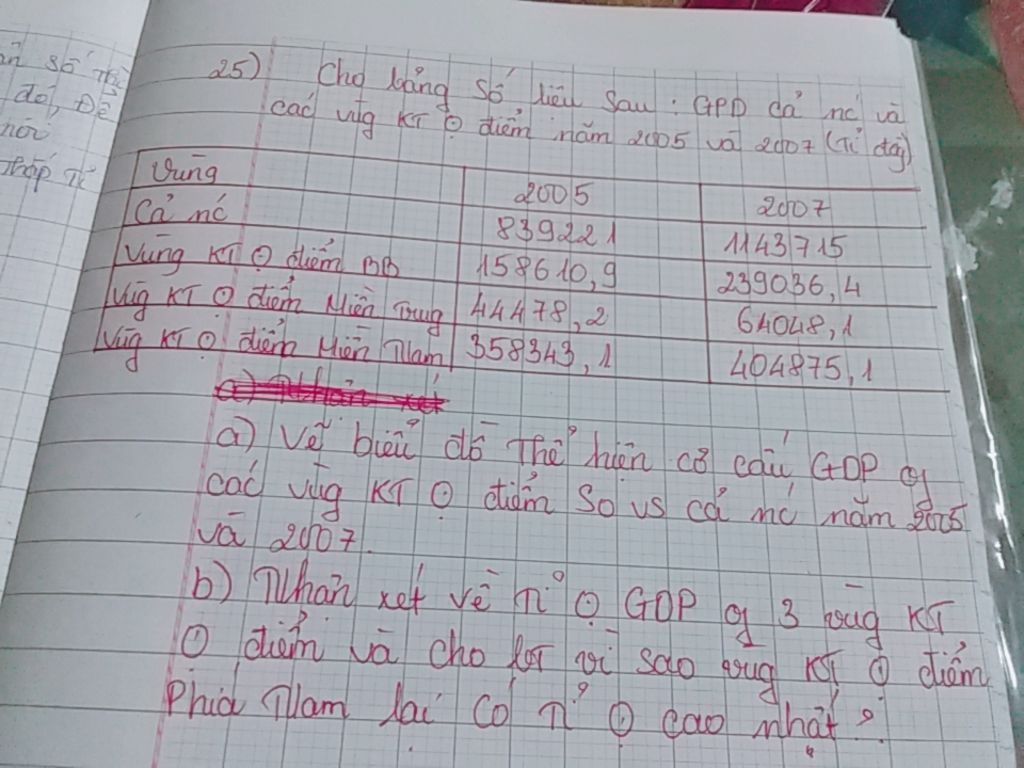 ản số
đó, Để
nói
25) Cho bảng số liệu sau : GPD cả nc và
các vùg KT ⊙ điểm năm 2005 và 2007 (Tỉ đồg)
Vùng 2005 2007
Cả nc 839221 1143715
Vùng KT ⊙ điểm BB 158610,9 239036,4
Vùg KT ⊙ điểm Miền Trug 44478,2 64048,1
Vùg KT ⊙ điểm Miền Nam 358343,1 404875,1
a) Nhận xét
a) Vẽ biểu đồ Thể hiện cơ cấu GDP of
các vùg KT ⊙ điểm So vs cả nc năm 2005
và 2007.
b) Nhận xét về Tỉ ⊙ GDP of 3 vùg KT
⊙ điểm và cho bít vì sao vùg KT ⊙ điểm
Phía Nam lại có Tỉ ⊙ cao nhất ?